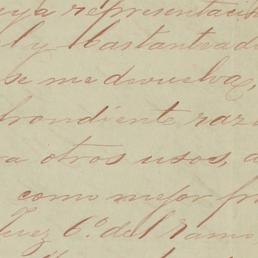 representaci
y bastanteado
se me devuelva,
pondiente razo
a otros usos, a
como mejor pr
Juez 6º del ramo